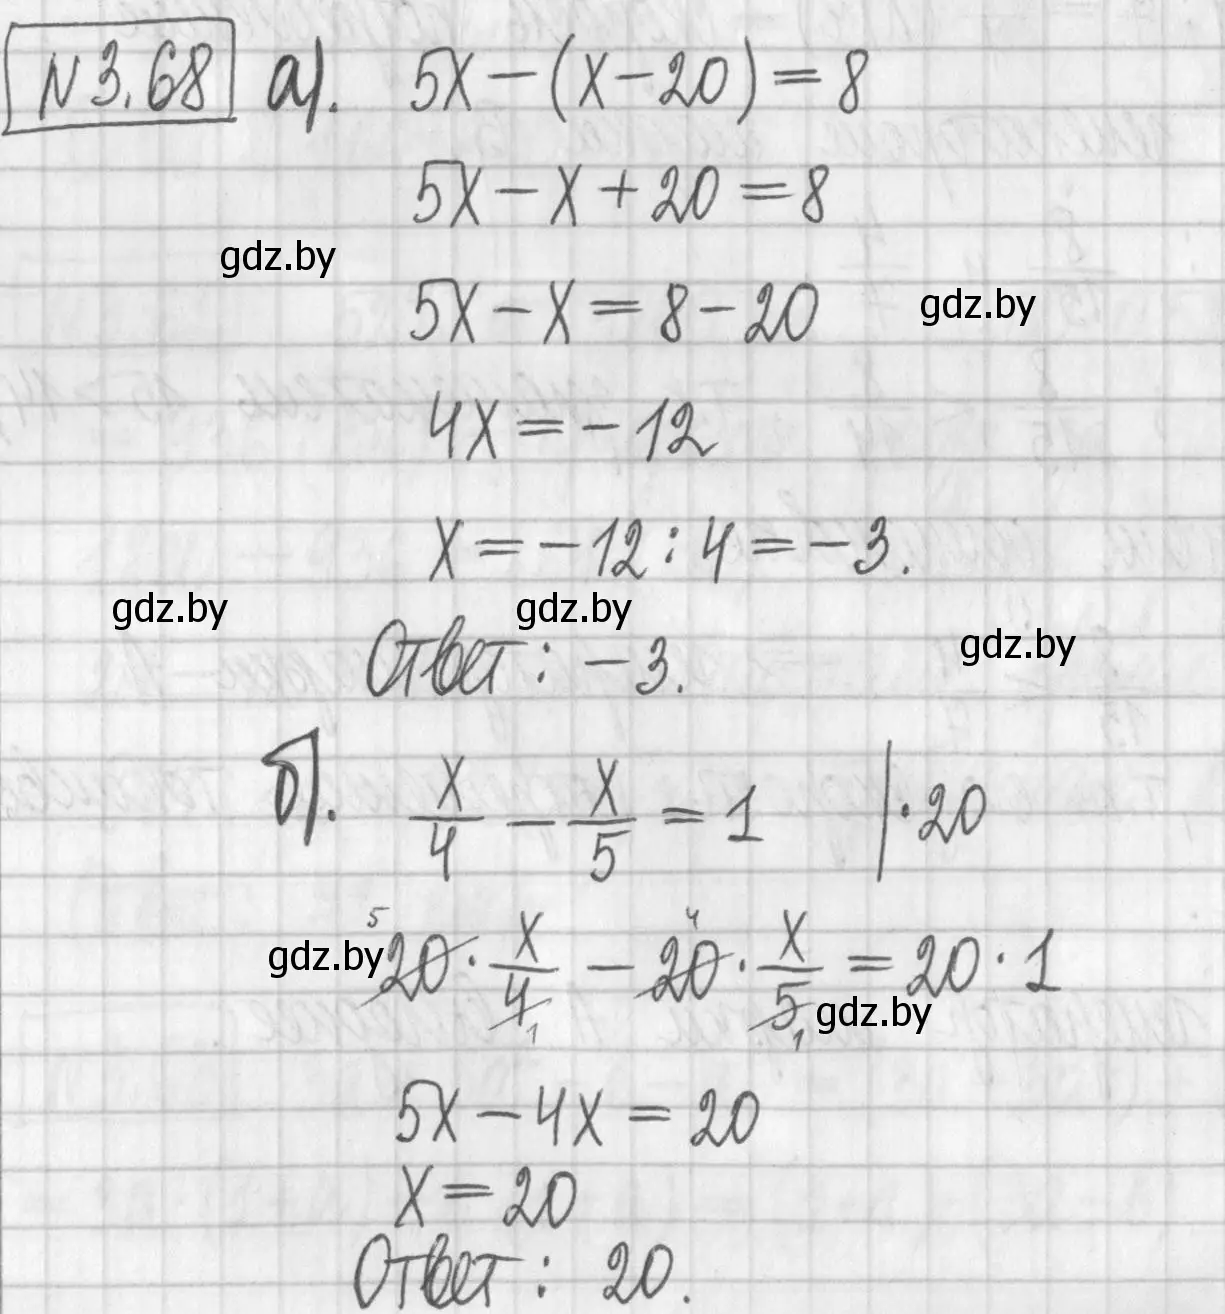 № 3.68 а). 5x − (x − 20) = 8
5x − x + 20 = 8
gdz.by
5x − x = 8 − 20
gdz.by
4x = − 12
x = − 12 : 4 = − 3.
gdz.by gdz.by
gdz.by
Ответ: − 3.
б). x/4 − x/5 = 1 | · 20
5 4
gdz.by 20 · x/4 − 20 · x/5 = 20 · 1
1 1 gdz.by
5x − 4x = 20
x = 20
Ответ: 20.